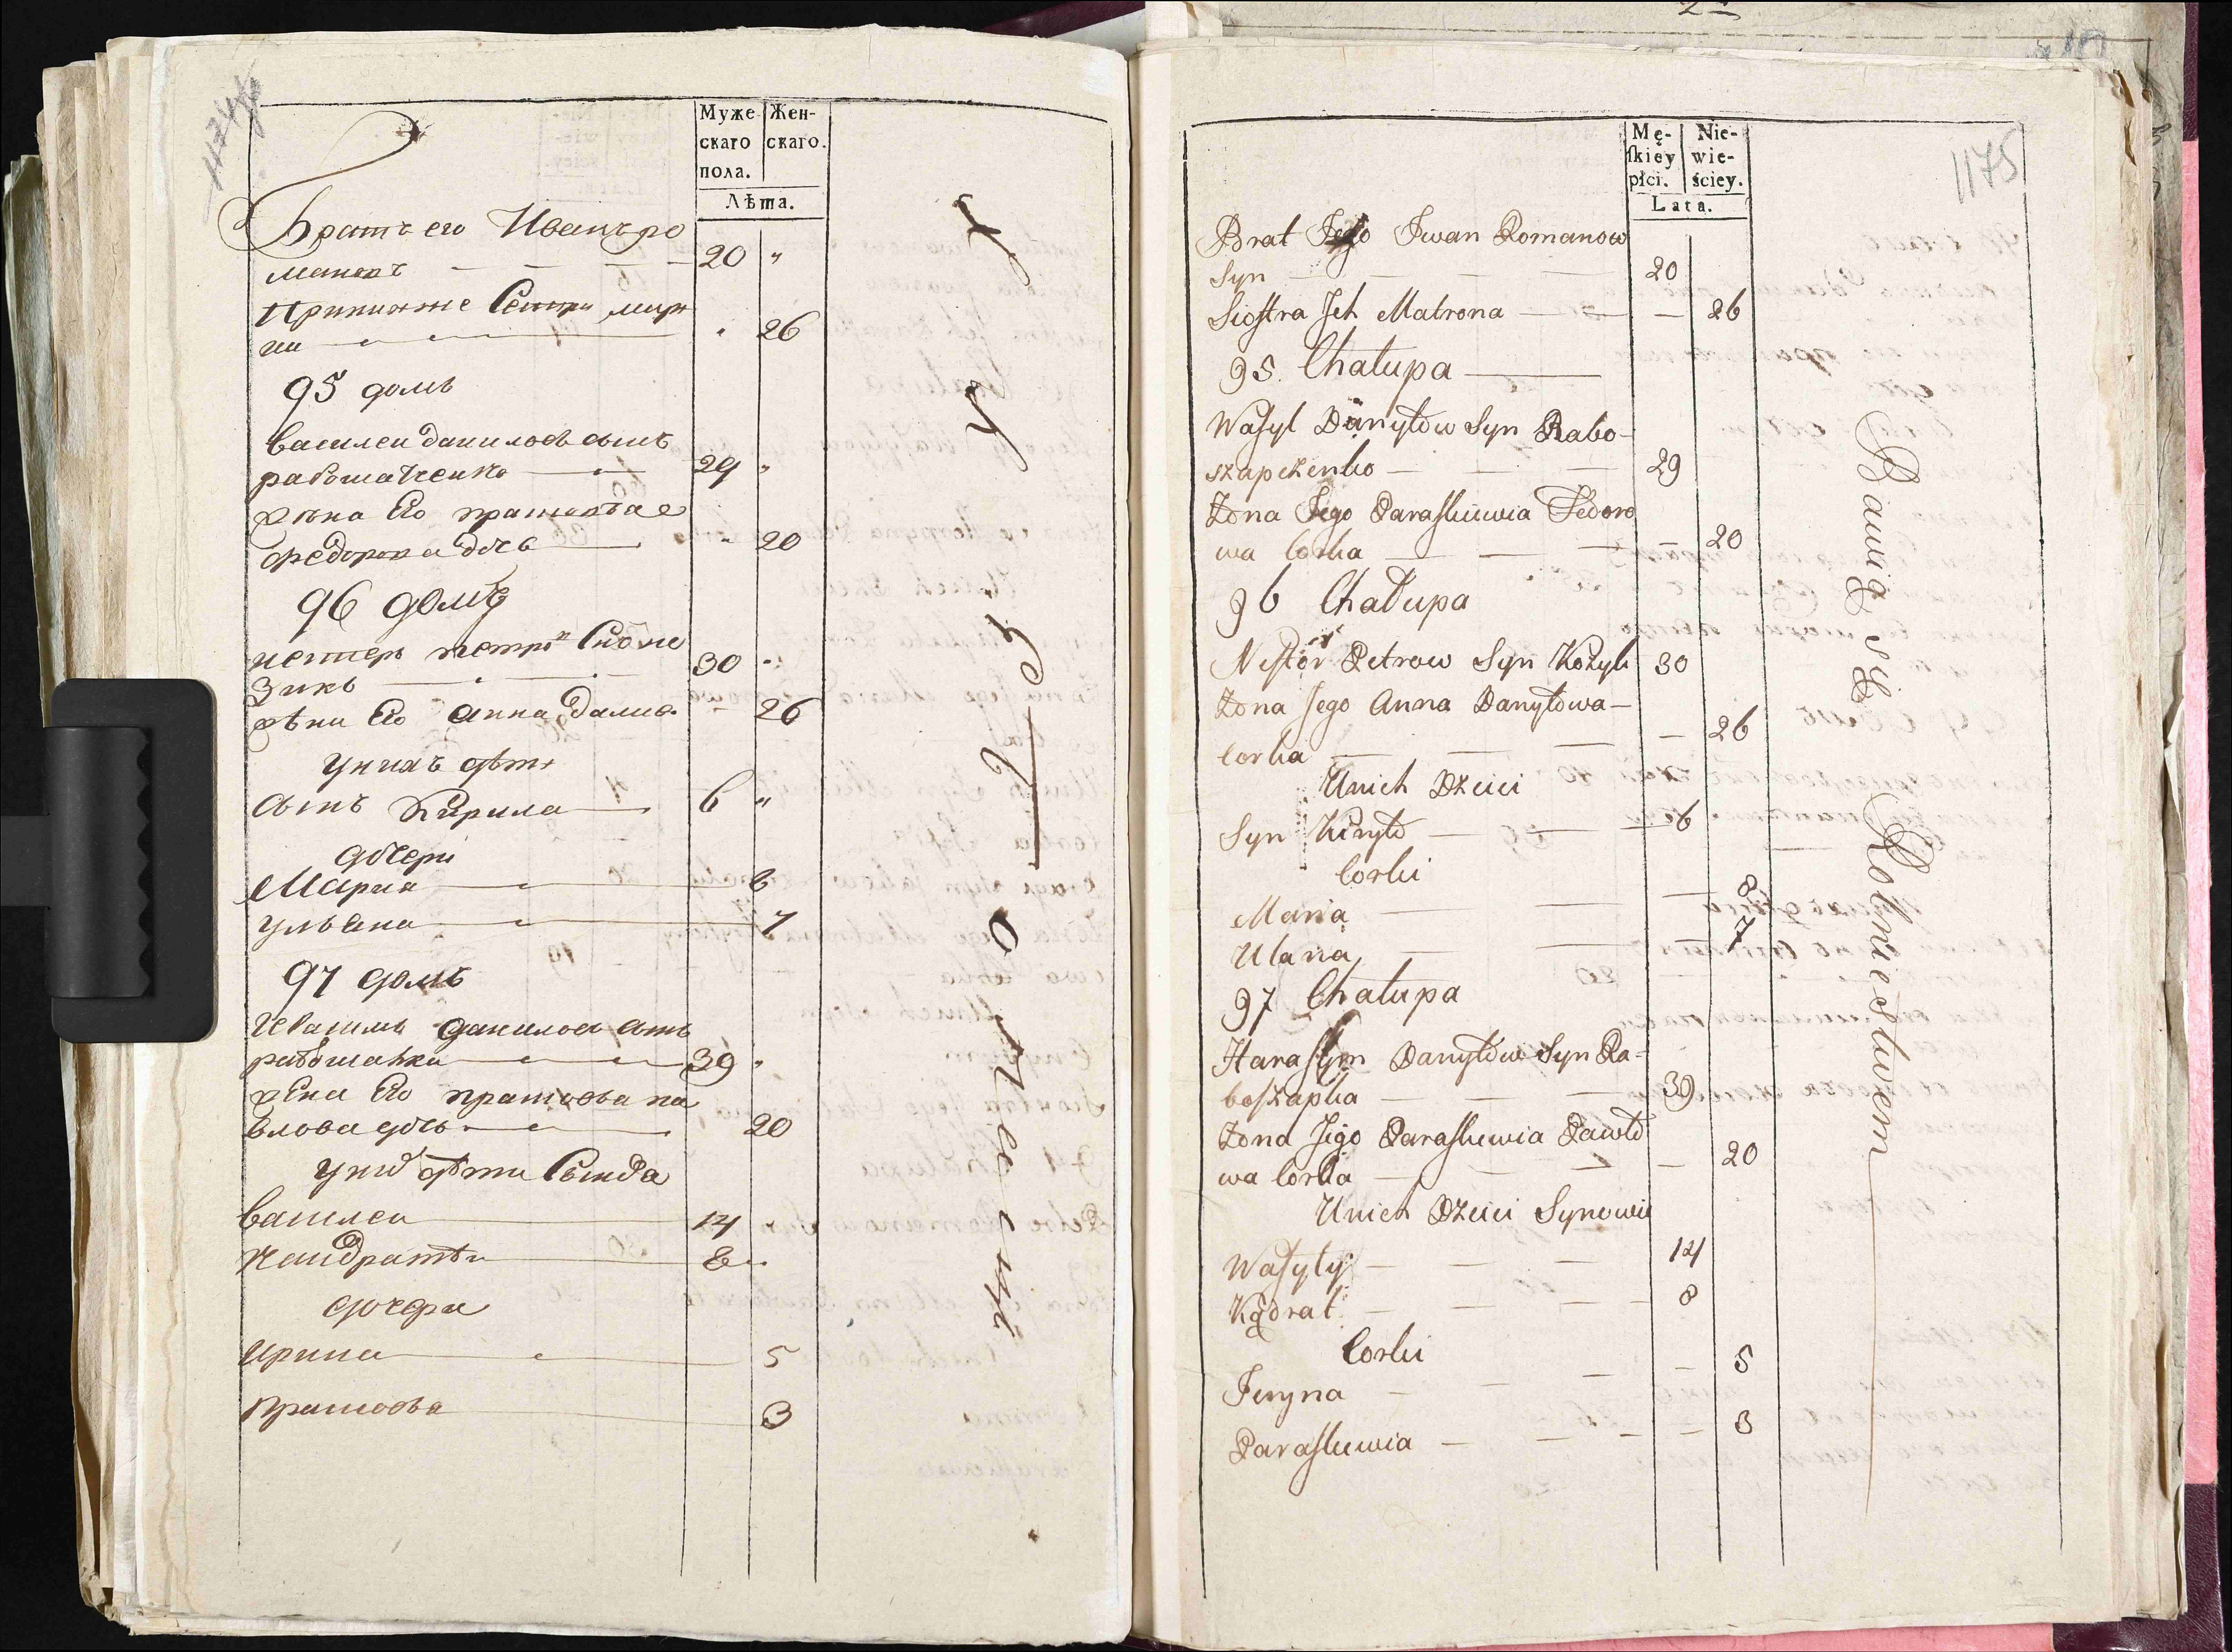 Муже
скаго
пола.
Жен-
скаго.
Лѣта.
Братъ его Иванъ ро
мановъ 20 "
" 26
95 домъ
василеи данилов сынъ
рабошапченко 29 "
жена Его прасковя
федорова дочь " 20
96 домъ
нестеръ петро Сн коже
зикъ 30 "
жѣна Его анна данил 26
у нихъ дѣти
сынъ Кирила 6 "
дочери
Мариа 8
ульяна 7
97 домъ
данилов сынъ
рабошапка 39 "
жена Его прасковя па
влова дочь 20
у них дѣти Сынова
василеи 14 "
Кандратеи 8 "
дочери
ирина 5
прасковя 3
1175
Mę-
skiey
płci.
Nie-
wie-
ściey.
Lata.
Brat Jego Iwan Romanow
Syn 20
Siostra Jch Matrona — 26
95. Chałupa
Wasyl Danyłow Syn Rabo-
szapczenko 29
Żona Jego Paraskiewia Fedoro
wa Corka — 20
96 Chałupa
Nestor Petrow Syn Kozyk 30
Żona Jego Anna Danyłowa
Corka — 26
Unich Dzieci
Syn Kiryło 6
Corki
Maria — 8
Ulana — 7
97 Chałupa
Harasym Danyłow Syn Ra-
boszapka 39
Żona Jego Paraskiewia Pawło
wa Corka — 20
Unich Dzieci Synowie
Wasyly 14
Kądrat 8
Corki
Iryna — 5
Paraskiewia — 3
Bawią się Rolnictwem